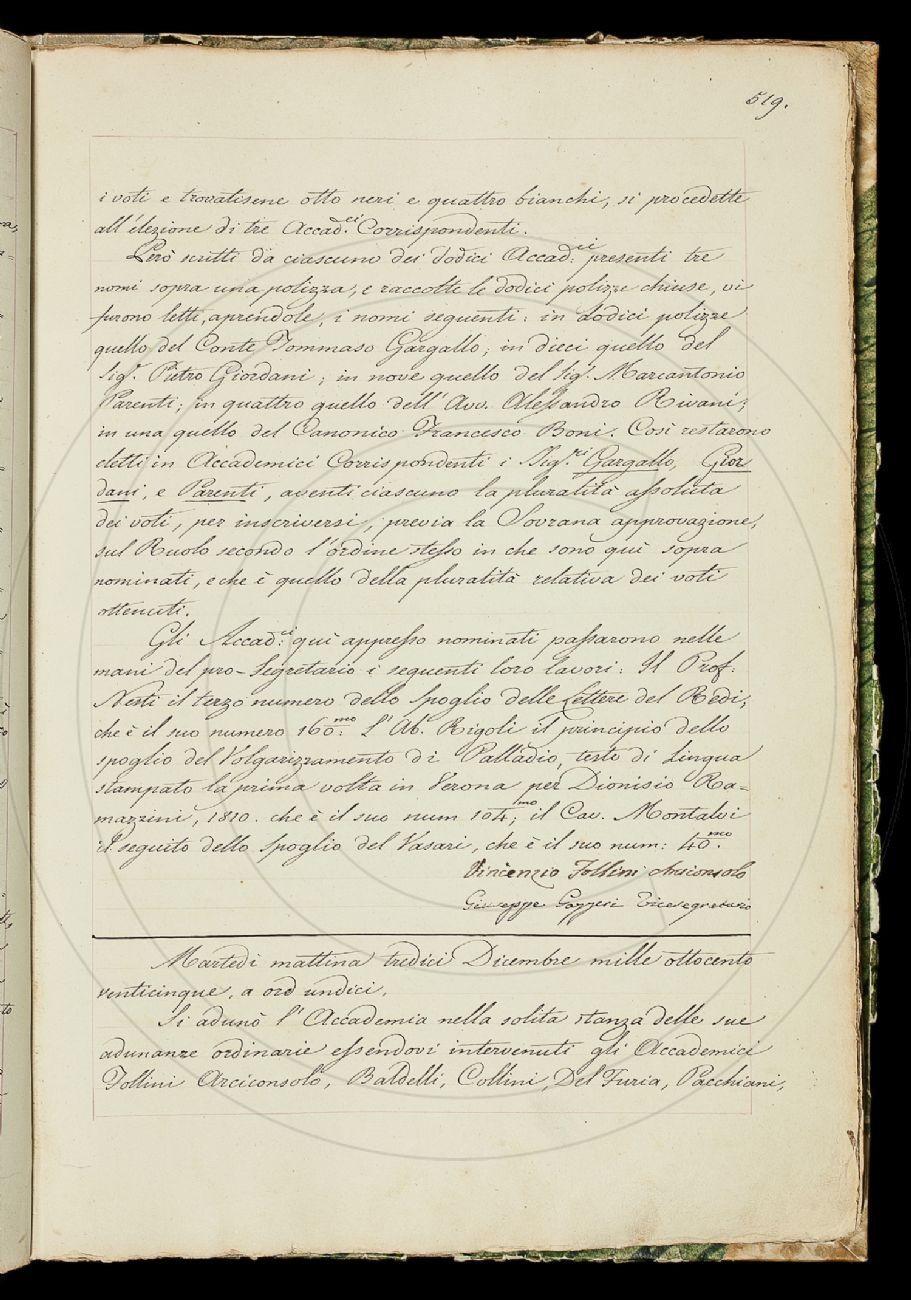 519.
i voti e trovatisene otto neri e quattro bianchi, si procedette
all'elezione di tre Accad.ci Corrispondenti.
Però scritti da ciascuno dei dodici Accad:ci presenti tre
nomi sopra una polizza, e raccolte le dodici polizze chiuse, vi
furono letti, aprendole, i nomi seguenti: in dodici polizze
quello del Conte Tommaso Gargallo; in dieci quello del
Sig.r Pietro Giordani; in nove quello del Sig.r Marcantonio
Parenti; in quattro quello dell'Avv. Alessandro Rivani;
in una quello del Canonico Francesco Boni. Così restarono
eletti in Accademici Corrispondenti i Sig.ri Gargallo, Gior
dani, e Parenti, aventi ciascuno la pluralità assoluta
dei voti, per inscriversi, previa la Sovrana approvazione,
sul Ruolo secondo l'ordine stesso in che sono quì sopra
nominati, e che è quello della pluralità relativa dei voti
ottenuti.
Gli Accad:ci quì appresso nominati passarono nelle
mani del pro-Segretario i seguenti loro lavori: Il Prof:
Nesti il terzo numero dello spoglio delle Lettere del Redi,
che è il suo numero 160:mo L'Ab. Rigoli il principio dello
spoglio del Volgarizzamento di Palladio, testo di Lingua
stampato la prima volta in Verona per Dionisio Ra-
manzini, 1810. che è il suo num 104,mo il Cav. Montalvi
il seguito dello Spoglio del Vasari, che è il suo num: 40.mo
Vincenzio Follini Arciconsolo
Giuseppe Gazzeri Vicesegretario
Martedì mattina tredici Dicembre mille ottocento
venticinque, a ord undici.
Si adunò l'Accademia nella solita stanza delle sue
adunanze ordinarie essendovi intervenuti gli Accademici
Follini Arciconsolo, Baldelli, Collini, Del Furia, Pacchiani,